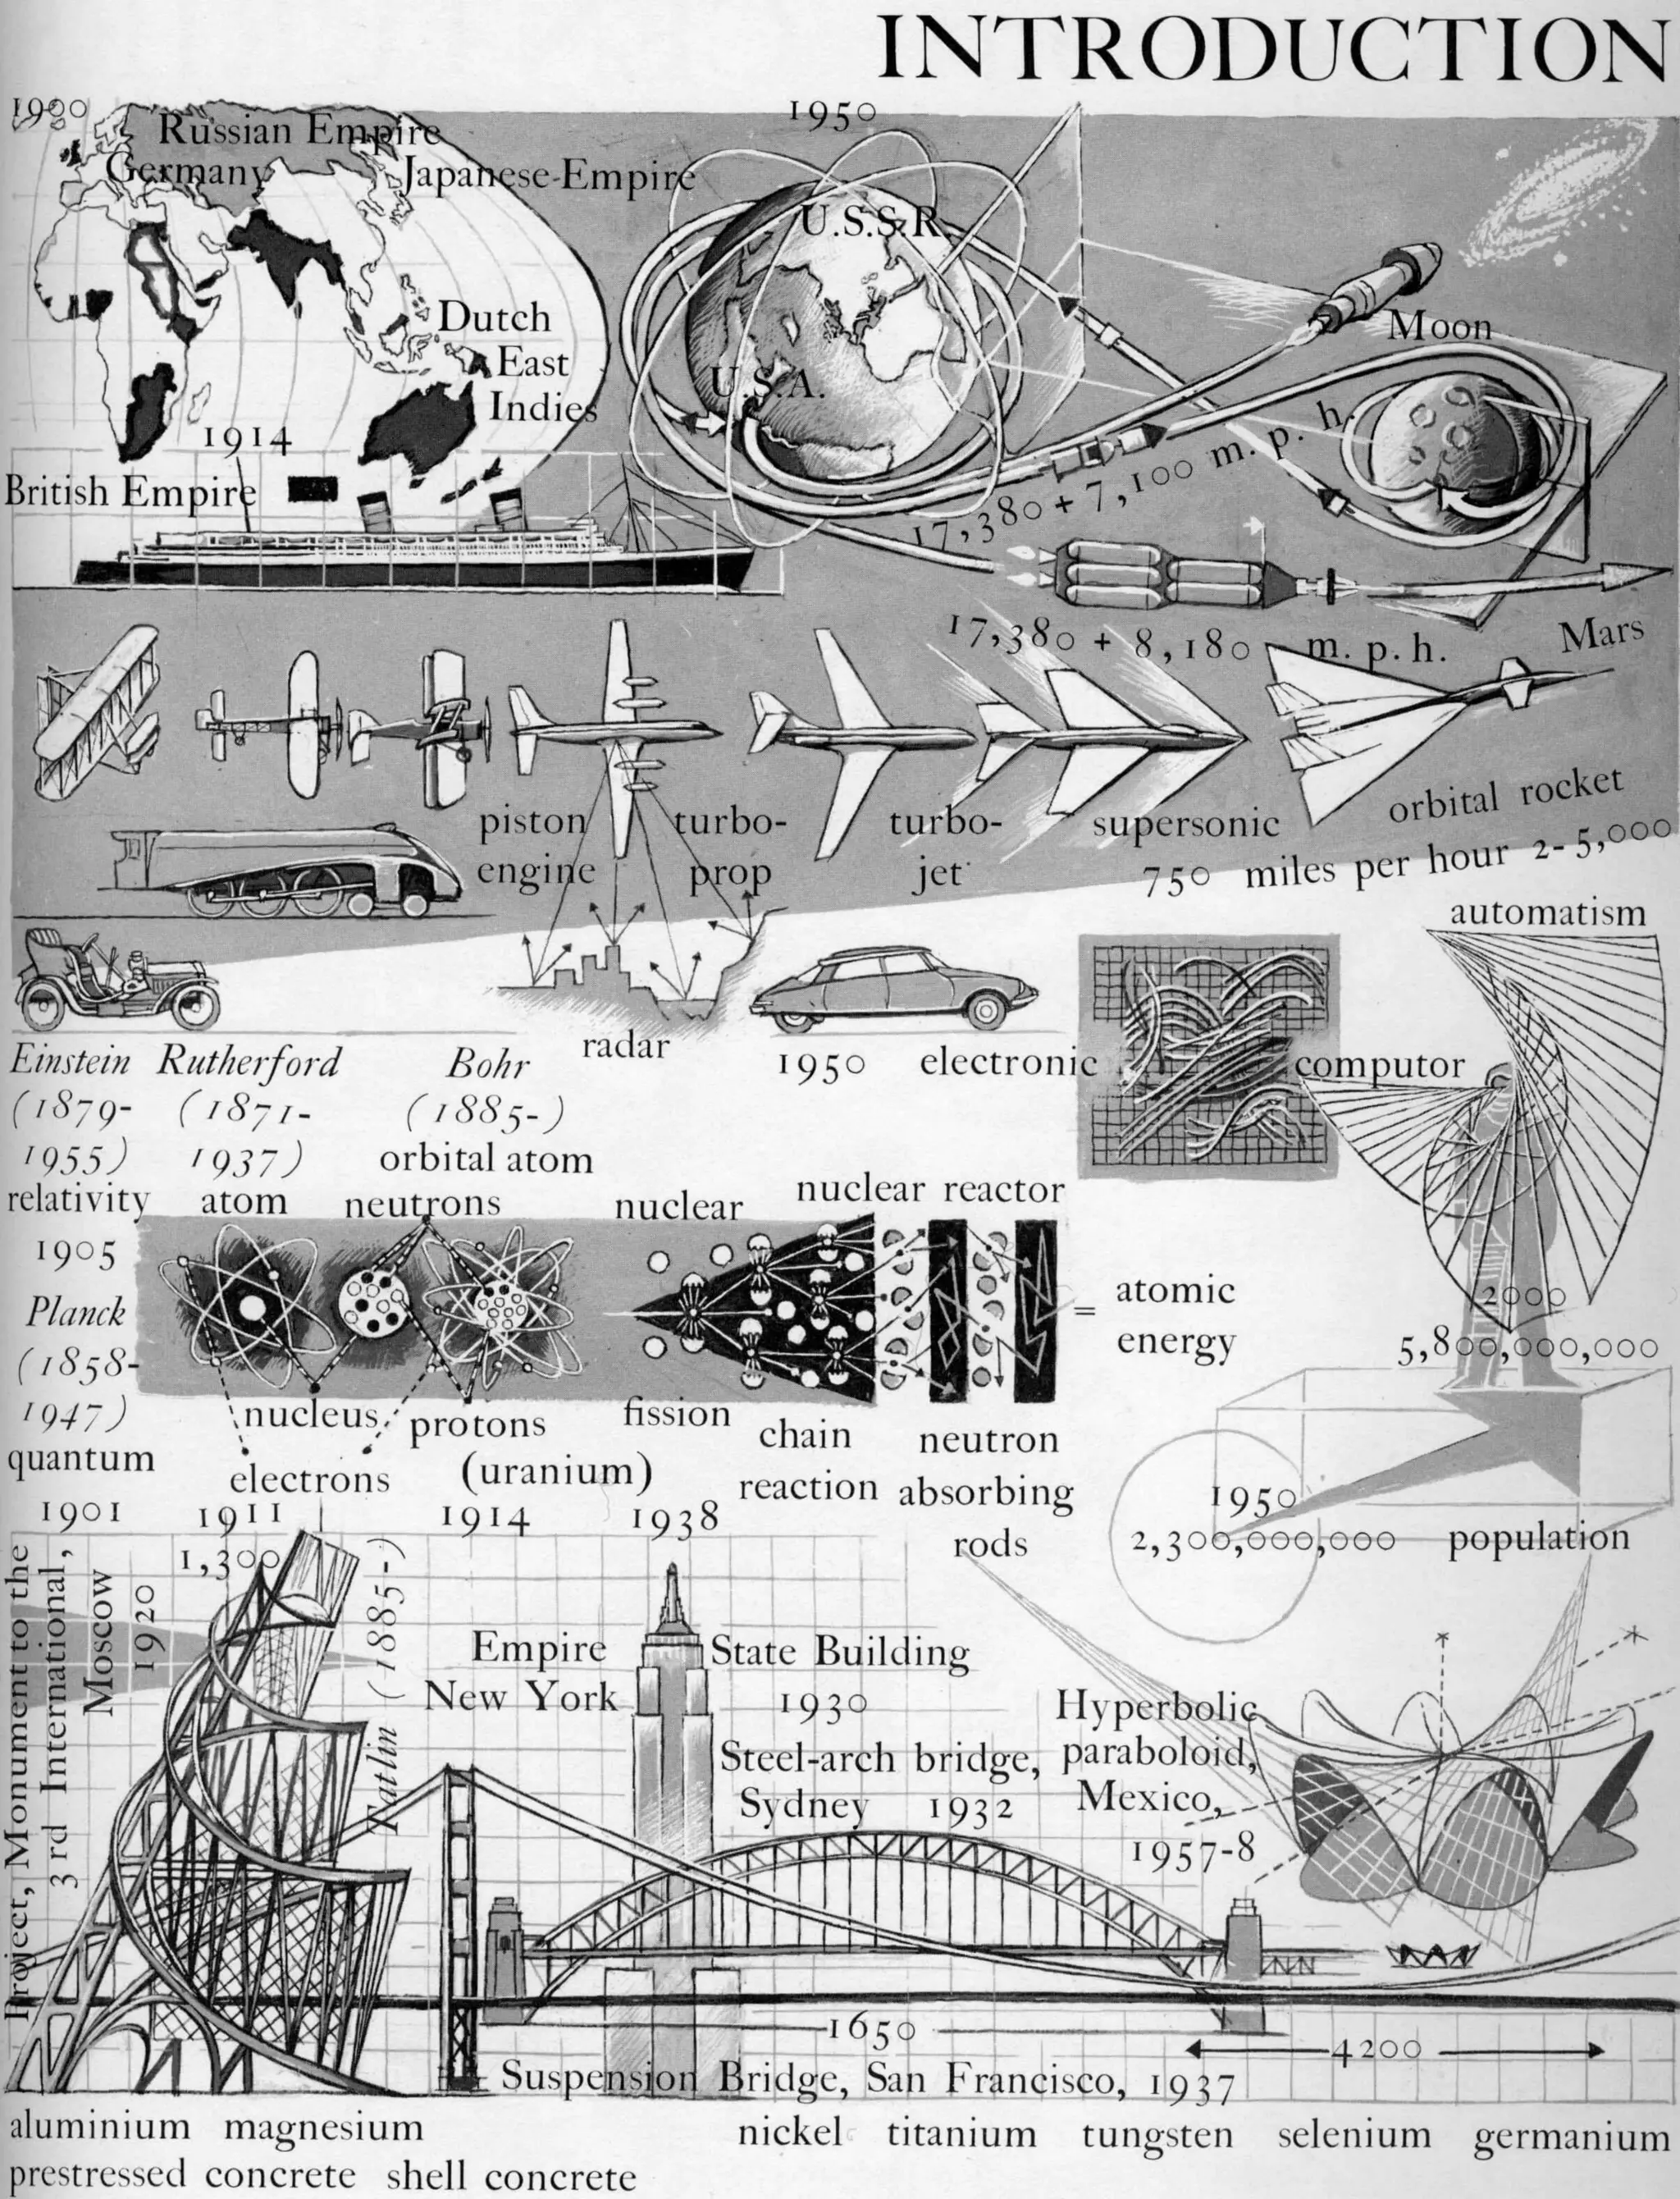 INTRODUCTION
1900
1950
Russian Empire
Germany
Japanese-Empire
U.S.S.R.
Dutch
East
Indies
Moon
U.S.A.
1914
British Empire
17,380 + 7,100 m. p. h.
17,380 + 8,180 m. p. h.
Mars
piston
engine
turbo-
prop
turbo-
jet
supersonic
orbital rocket
750 miles per hour 2-5,000
automatism
radar
1950 electronic computor
Einstein
(1879-
1955)
relativity
1905
Rutherford
(1871-
1937)
atom
Bohr
(1885-)
orbital atom
neutrons
nuclear
nuclear reactor
Planck
(1858-
1947)
quantum
1901
= atomic
energy
2000
5,800,000,000
nucleus
protons
electrons
(uranium)
fission
chain
reaction
neutron
absorbing
rods
1911
1914
1938
1950
2,300,000,000 population
1,300
Project, Monument to the
3rd International,
Moscow
1920
Tatlin (1885-)
Empire State Building
New York 1930
Steel-arch bridge,
Sydney 1932
Hyperbolic
paraboloid,
Mexico,
1957-8
1650
4200
Suspension Bridge, San Francisco, 1937
aluminium magnesium nickel titanium tungsten selenium germanium
prestressed concrete shell concrete